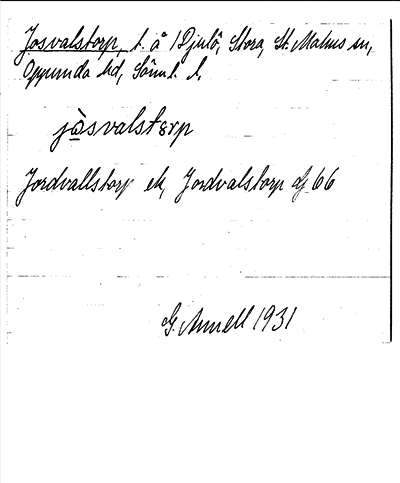 Josvalstorp, t. å Djulö, Stora, St. Malms sn,
Oppunda hd, Sörml. l.
jòsvalstørp
Jordvallstorp ek, Jordvalstorp dj 66
G. Annell 1931